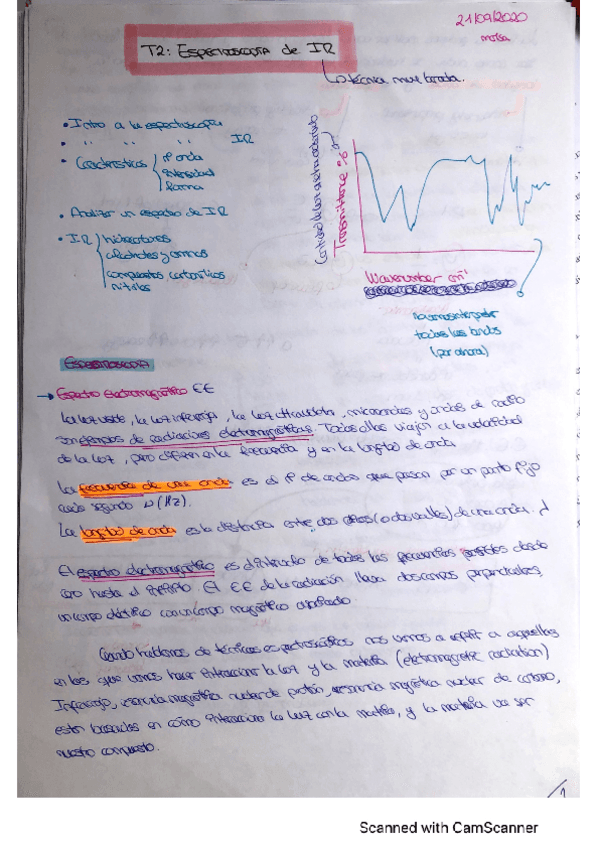 21/09/2020
T2: Espectroscopía de IR
↳ técnica muy barata.
• Intro a la espectroscopía
• " " " IR
• Características
nº onda
intensidad
forma
• Analizar un espectro de IR
• IR
hidrocarburos
alcoholes y aminas
compuestos carbonílicos
nitrilos
Cantidad de luz
Transmittance %
Wavenumber cm⁻¹
no vamos interpretar
todas las bandas
(por ahora)
Espectroscopía
→ Espectro electromagnético EE
La luz visible, la luz infrarroja, la luz ultravioleta, microondas y ondas de radio
son ejemplos de radiaciones electromagnéticas. Todas ellas viajan a la velocidad
de la luz, pero difieren en la frecuencia y en la longitud de onda
La frecuencia de una onda es el nº de ondas que pasan por un punto fijo
cada segundo ν (Hz).
La longitud de onda es la distancia entre dos picos (o dos valles) de una onda. λ
El espectro electromagnético es el intervalo de todas las frecuencias posibles desde
cero hasta el infinito. El EE de la radiación lleva dos campos perpendiculares,
un campo eléctrico con un campo magnético
Cuando hablamos de técnicas espectroscópicas nos vamos a referir a aquellas
en las que vamos hacer interaccionar la luz y la materia (eletromagnetic radiation)
Infrarrojo, resonancia magnética nuclear de protón, resonancia magnética nuclear de carbono,
están basadas en cómo interacciona la luz con la materia, y la materia va ser
nuestro compuesto.
1
Scanned with CamScanner